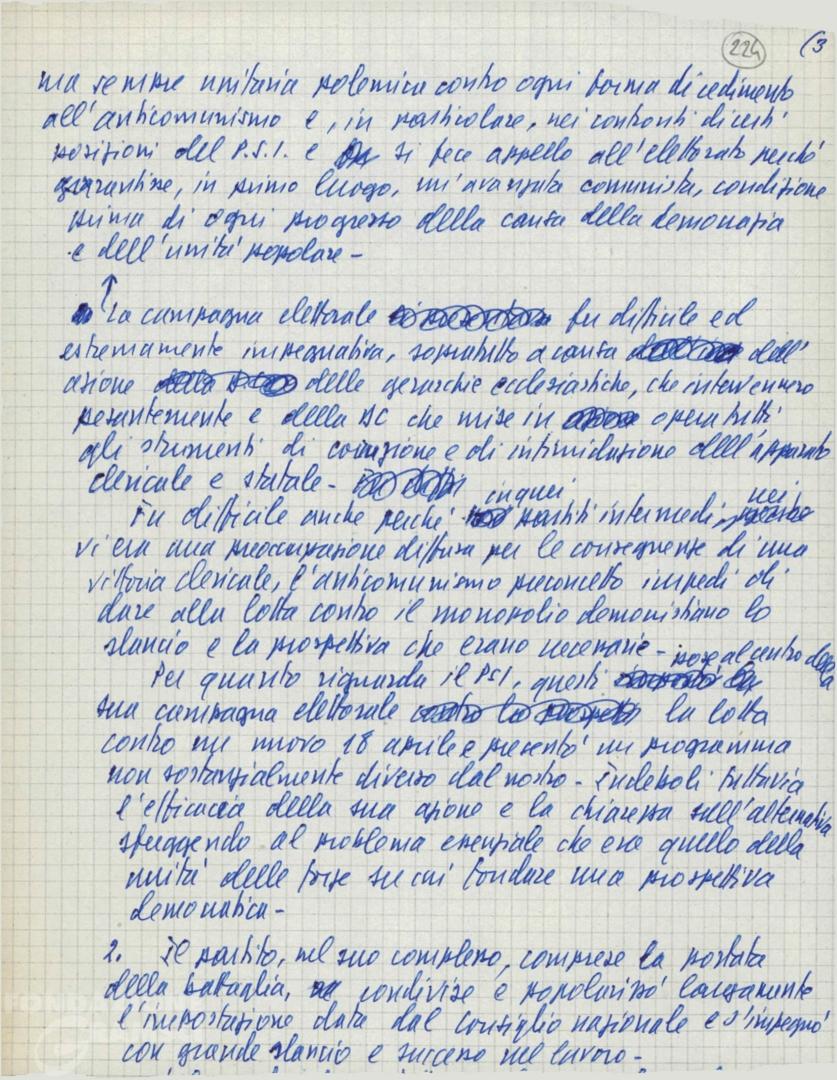 224 (3
ma sempre unitaria polemica contro ogni forma di cedimento
all'anticomunismo e, in particolare, nei confronti di certi
posizioni del P.S.I. e si fece appello all'elettorato perché
garantisse, in primo luogo, un'avanzata comunista, condizione
prima di ogni progresso della causa della democrazia
e dell'unità popolare -
La campagna elettorale fu difficile ed
estremamente impegnativa, sopratutto a causa dell'
azione delle gerarchie ecclesiastiche, che intervennero
pesantemente e della DC che mise in opera tutti
gli strumenti di coruzione e di intimidazione dell'apparato
clericale e statale -
in quei nei
Fu difficile anche perché partiti intermedi,
vi era una preoccupazione diffusa per le conseguenze di una
vittoria clericale, l'anticomunismo preconcetto impedì di
dare alla lotta contro il monopolio democristiano lo
slancio e la prospettiva che erano necessarie -
pose al centro della
Per quanto riguarda il PSI, questi
sua campagna elettorale la lotta
contro un nuovo 18 aprile e presentò un programma
non sostanzialmente diverso dal nostro - Indebolì tuttavia
l'efficacia della sua azione e la chiarezza sull'alternativa
sfuggendo al problema essenziale che era quello della
unità delle forze su cui fondare una prospettiva
democratica -
2. Il partito, nel suo complesso, comprese la portata
della battaglia, condivise e popolarizzò largamente
l'impostazione data dal consiglio nazionale e s'impegnò
con grande slancio e successo nel lavoro -